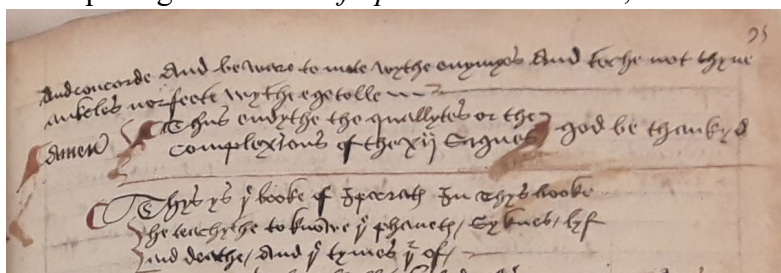 And concorde And be ware to mete wythe enymyes And toche not thyne
ankeles nor feete wythe egetolle
Thus endythe the quallytes or the
Amen complexions of the xij Signes god be thankyd
Thys ys yͤ booke of Ipocrath In thys booke
he teachythe to knowe yͤ planeth, Syknes, lyf
And deathe, And yͤ tymes yͬ of,